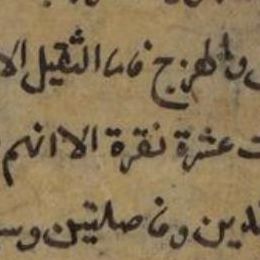 والهزج فاما الثقيل الا
عشرة نقرة الا انهم
وفاصلتين و